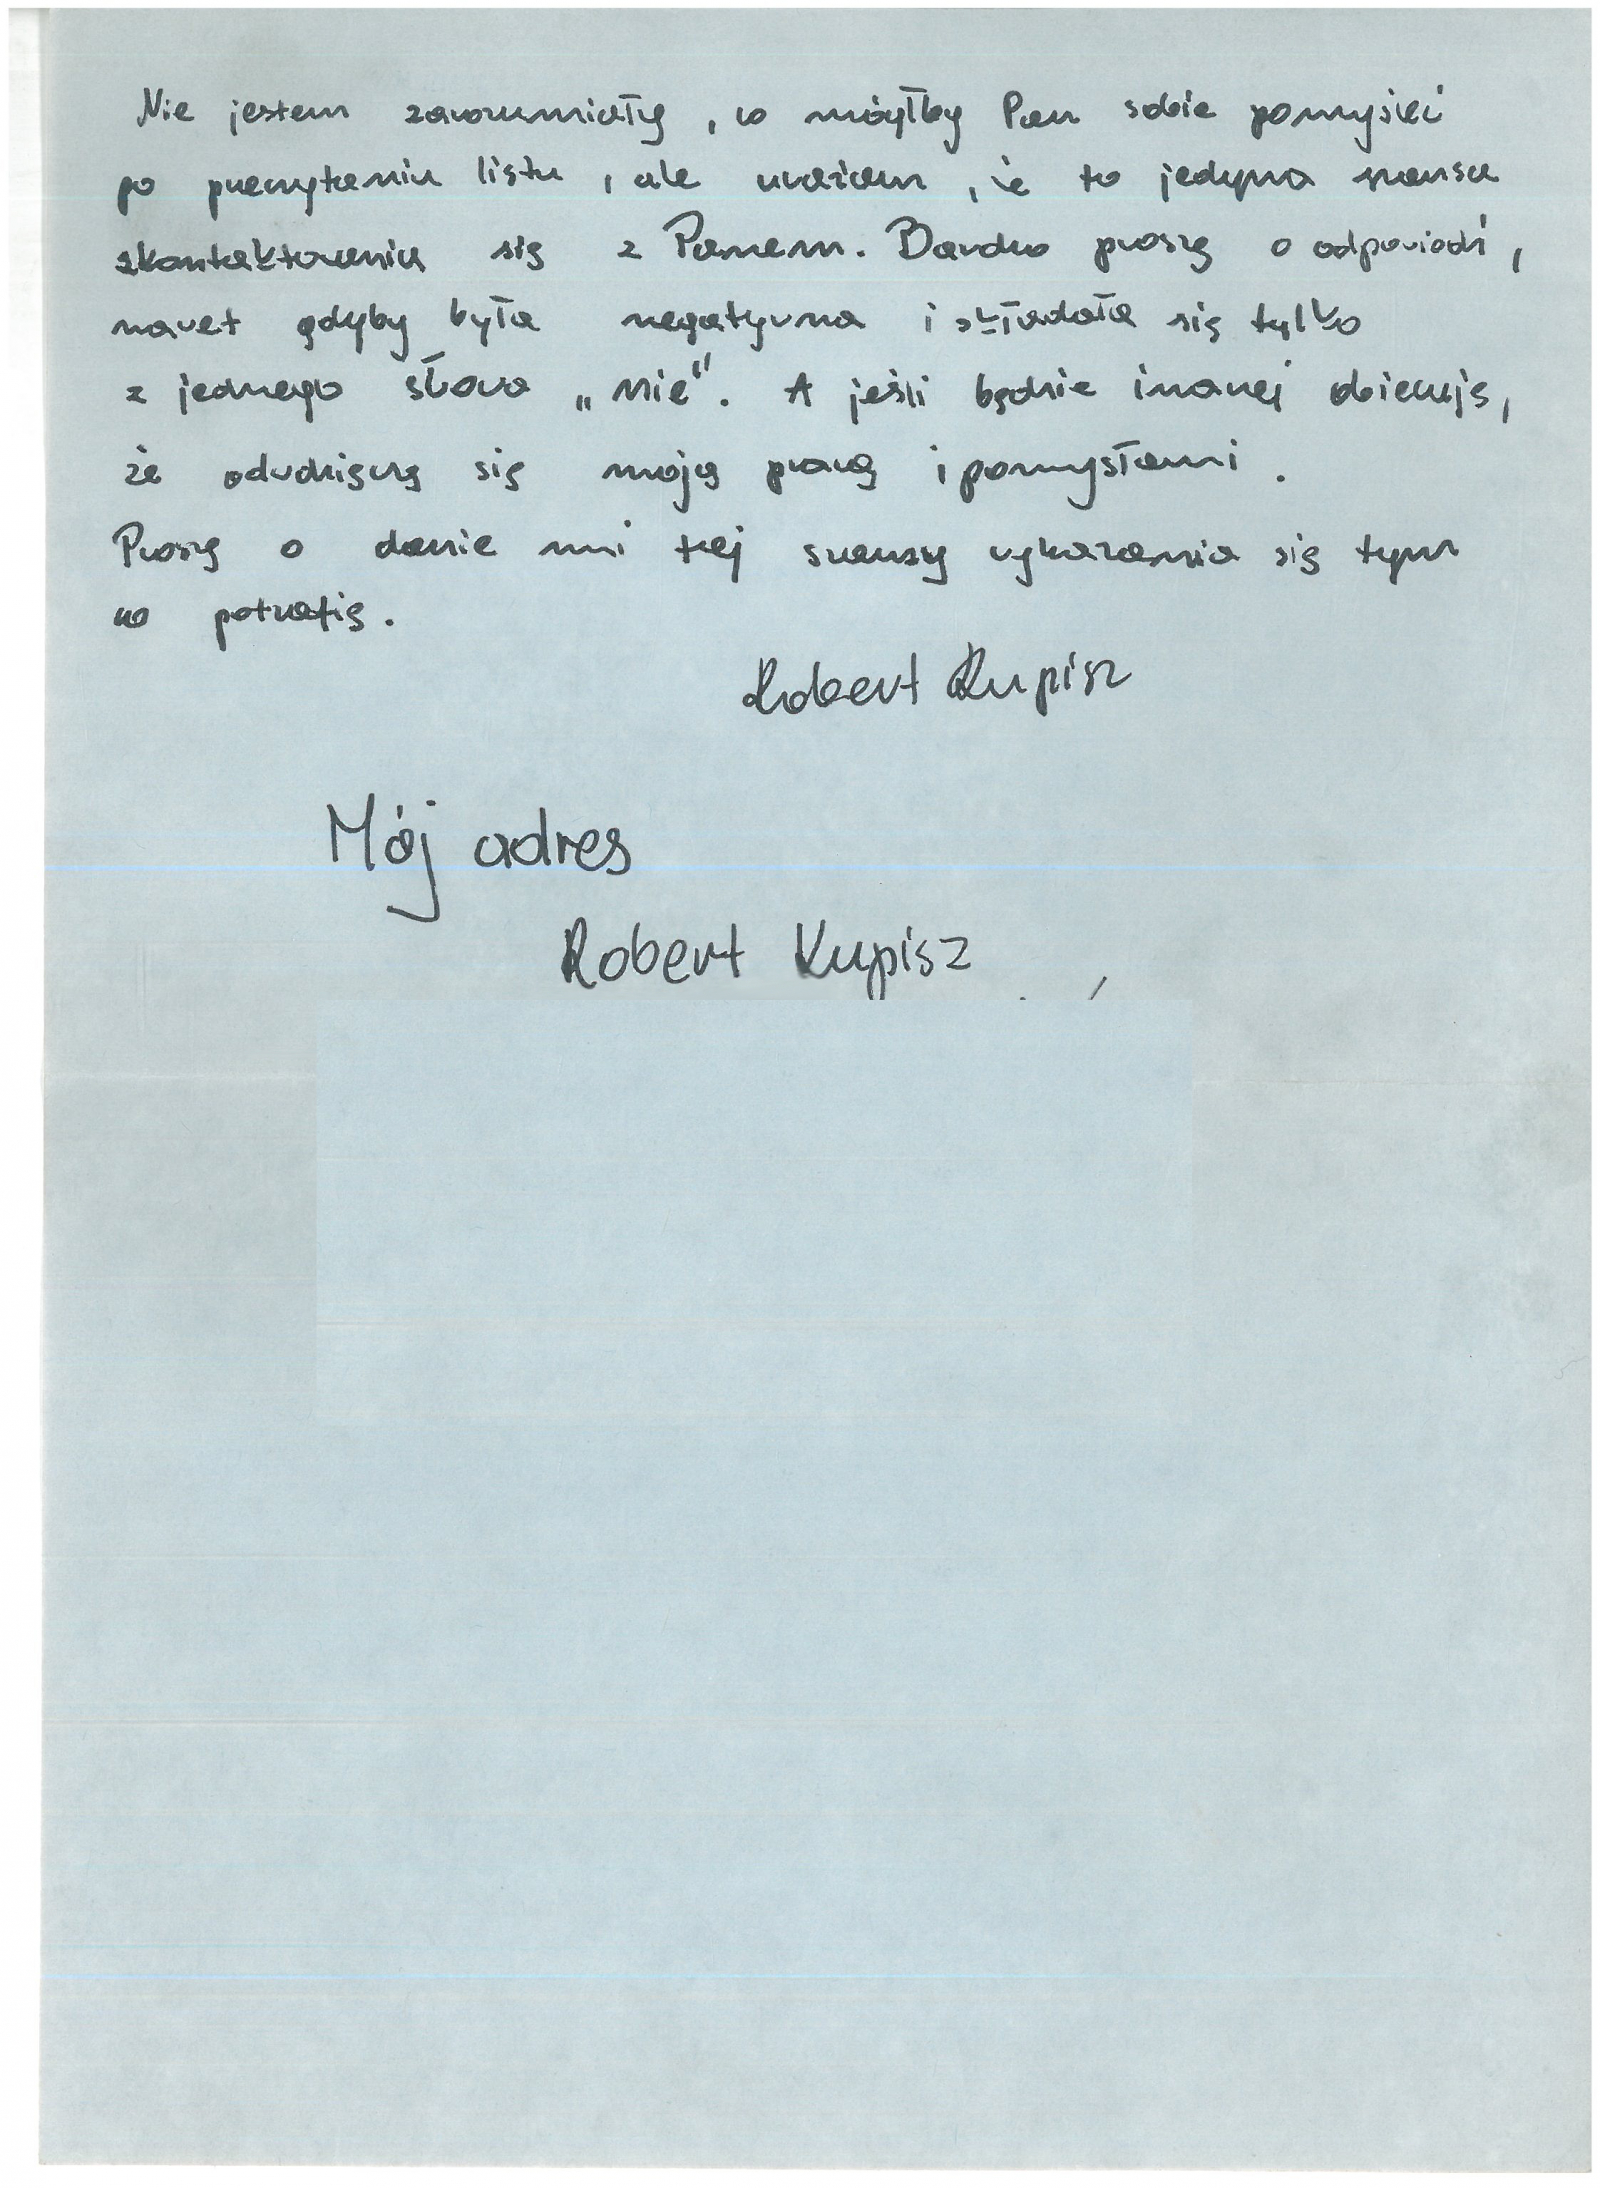 Nie jestem zarozumiały, co mógłby Pan sobie pomyśleć
po przeczytaniu listu, ale uważam, że to jedyna szansa
skontaktowania się z Panem. Bardzo proszę o odpowiedź,
nawet gdyby była negatywna i składała się tylko
z jednego słowa „nie". A jeśli będzie inaczej obiecuję,
że odwdzięczę się moją pracą i pomysłami.
Proszę o danie mi tej szansy wykazania się tym
co potrafię.
Robert Kupisz
Mój adres
Robert Kupisz